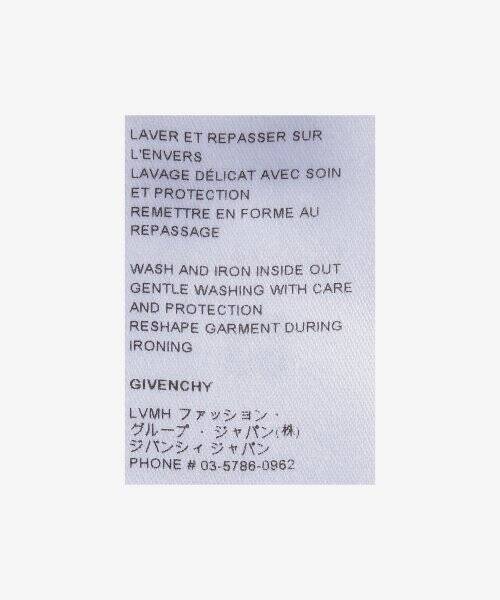 LAVER ET REPASSER SUR
L'ENVERS
LAVAGE DÉLICAT AVEC SOIN
ET PROTECTION
REMETTRE EN FORME AU
REPASSAGE
WASH AND IRON INSIDE OUT
GENTLE WASHING WITH CARE
AND PROTECTION
RESHAPE GARMENT DURING
IRONING
GIVENCHY
LVMH ファッション・
グループ・ジャパン(株)
ジバンシィ ジャパン
PHONE # 03-5786-0962